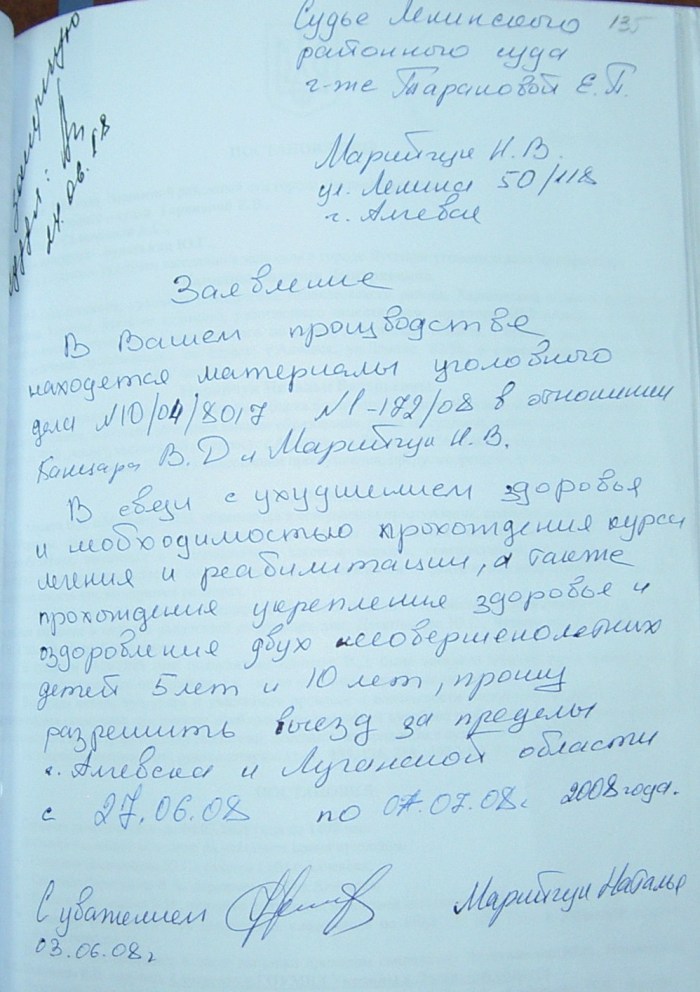 Судье Ленинского 135
районного суда
г-же Тарановой Е.П.
Марийгуи Н.В.
ул. Ленина 50/118
г. Алчевск
24.06.08
Заявление
В Вашем производстве
находется материалы уголовного
дела №10/04/8017 №1-172/08 в отношении
Канцара В.Д и Марийгуи Н.В.
В связи с ухудшением здоровья
и необходимостью прохождения курса
лечения и реабилитации, а также
прохождения укрепления здоровья и
оздоровления двух несовершенолетних
детей 5 лет и 10 лет, прошу
разрешить выезд за пределы
г. Алчевска и Луганской области
с 27.06.08 по 07.07.08г 2008 года.
С уважением Марийгуи Наталья
03.06.08г